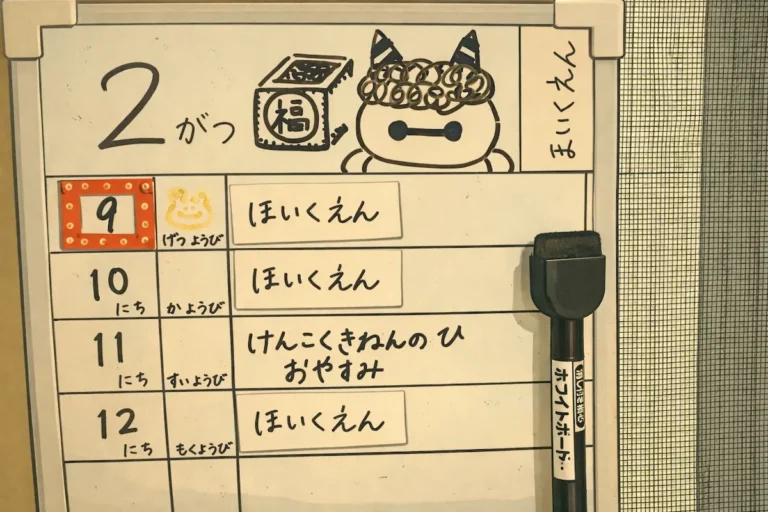 2 がつ
福
ほいくえん
9 げつようび ほいくえん
10 にち かようび ほいくえん
11 にち すいようび けんこくきねんの ひ
おやすみ
12 にち もくようび ほいくえん
ホワイトボード